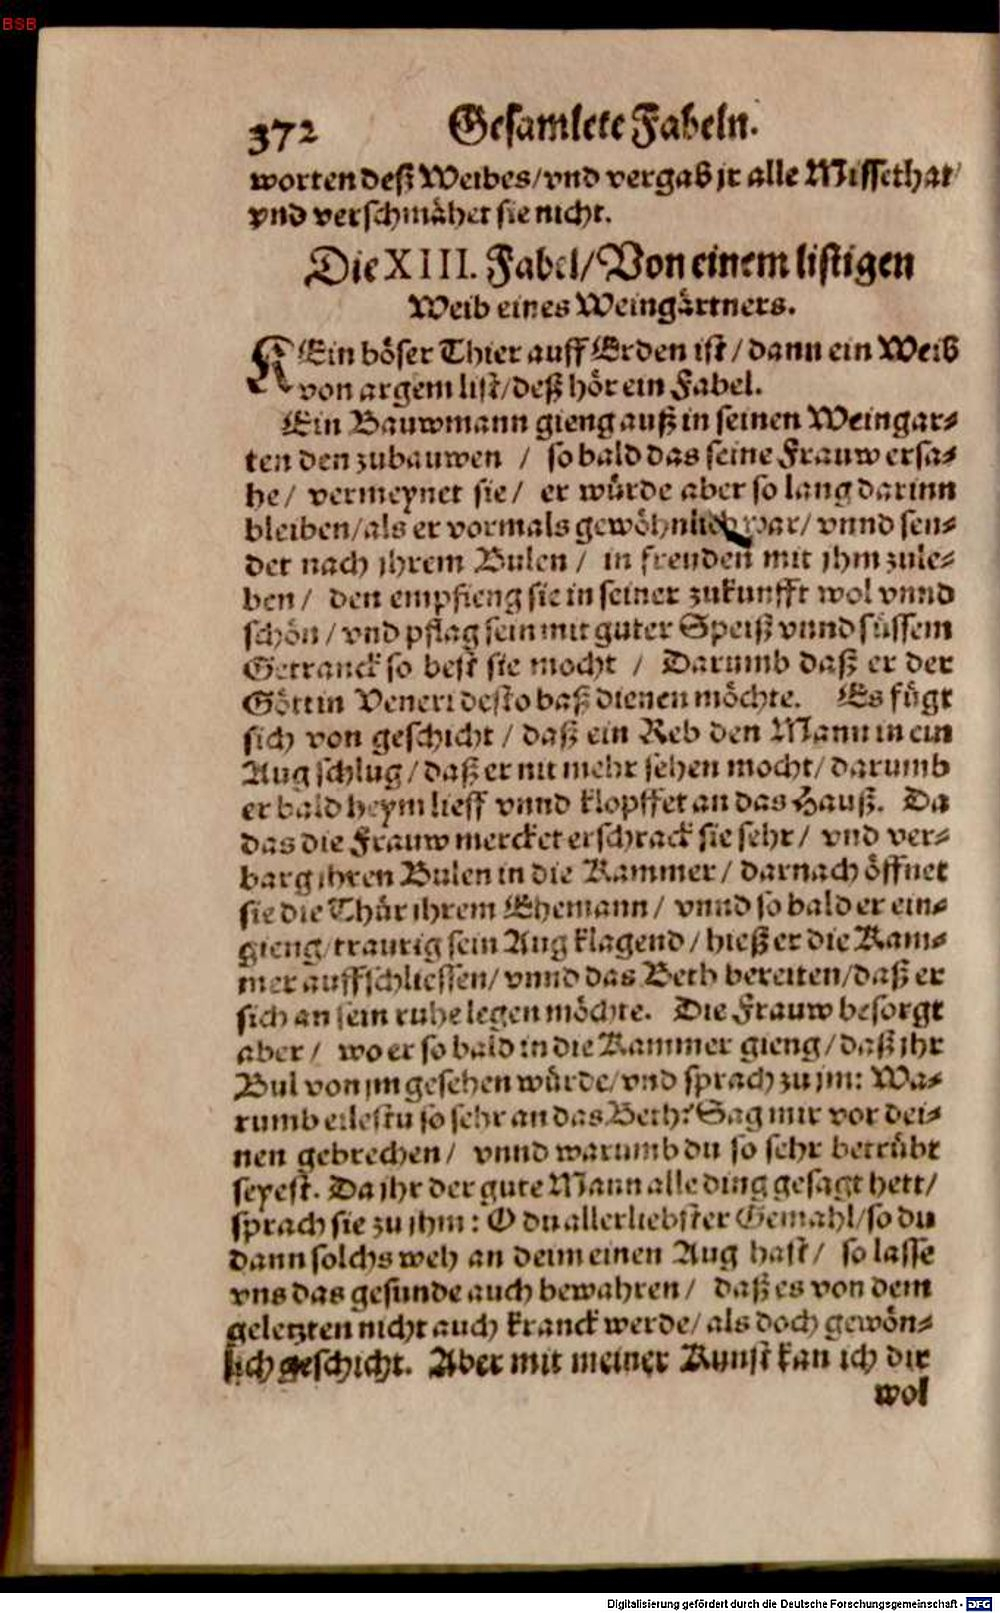 BSB
372 Gesamlete Fabeln.
worten deß Weibes/vnd vergab jr alle Missethat/
vnd verschmähet sie nicht.
Die XIII. Fabel/Von einem listigen
Weib eines Weingärtners.
KEin böser Thier auff Erden ist/dann ein Weib
von argem list/deß hör ein Fabel.
Ein Bauwmann gieng auß in seinen Weingar-
ten den zubauwen / so bald das seine Frauw ersa-
he/ vermeynet sie/ er würde aber so lang darinn
bleiben/als er vormals gewöhnlich war/ vnnd sen-
det nach jhrem Bulen / in freuden mit jhm zule-
ben/ den empfieng sie in seiner zukunfft wol vnnd
schön/vnd pflag sein mit guter Speiß vnnd süssem
Getranck so best sie mocht / Darumb daß er der
Göttin Veneri desto baß dienen möchte. Es fügt
sich von geschicht/ daß ein Reb den Mann in ein
Aug schlug/daß er nit mehr sehen mocht/darumb
er bald heym lieff vnnd klopffet an das Hauß. Da
das die Frauw mercket erschrack sie sehr/ vnd ver-
barg jhren Bulen in die Kammer/ darnach öffnet
sie die Thür jhrem Ehemann/ vnnd so bald er ein-
gieng/traurig sein Aug klagend/hieß er die Kam-
mer auffschliessen/vnnd das Beth bereiten/daß er
sich an sein ruhe legen möchte. Die Frauw besorgt
aber/ wo er so bald in die Kammer gieng/daß jhr
Bul von jm gesehen würde/vnd sprach zu jm: Wa-
rumb eilestu so sehr an das Beth? Sag mir vor dei-
nen gebrechen/ vnnd warumb du so sehr betrübt
seyest. Da jhr der gute Mann alle ding gesagt hett/
sprach sie zu jhm: O du allerliebster Gemahl/so du
dann solchs weh an deim einen Aug hast/ so lasse
vns das gesunde auch bewahren/ daß es von dem
geletzten nicht auch kranck werde/als doch gewön-
lich geschicht. Aber mit meiner Kunst kan ich dir
wol
Digitalisierung gefördert durch die Deutsche Forschungsgemeinschaft - DFG